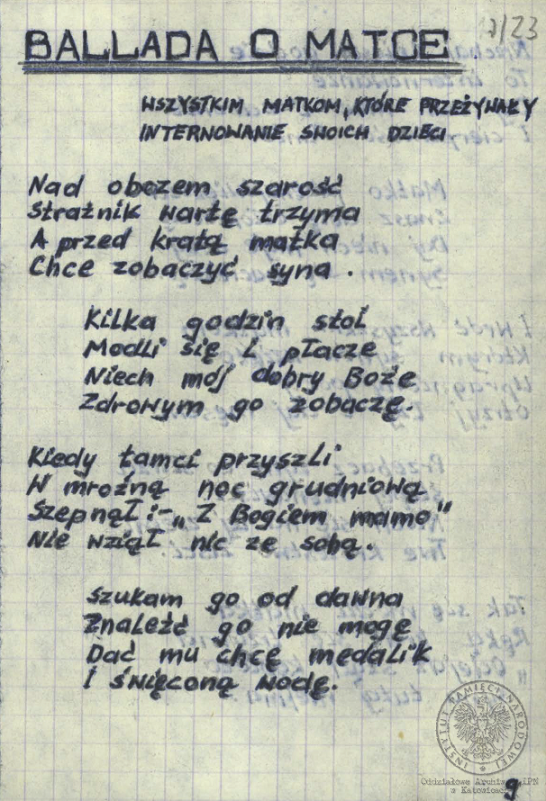 17/23
BALLADA O MATCE
WSZYSTKIM MATKOM, KTÓRE PRZEŻYWAŁY
INTERNOWANIE SWOICH DZIECI
Nad obozem szarość
Strażnik wartę trzyma
A przed kratą matka
Chce zobaczyć syna.
Kilka godzin stoi
Modli się i płacze
Niech mój dobry Boże
Zdrowym go zobaczę.
Kiedy tamci przyszli
W mroźną noc grudniową
Szepnął:-„Z Bogiem mamo"
Nie wziął nic ze sobą.
Szukam go od dawna
Znaleźć go nie mogę
Dać mu chcę medalik
I święconą wodę.
INSTYTUT PAMIĘCI NARODOWEJ
Oddziałowe Archiwum IPN
w Katowicach
9